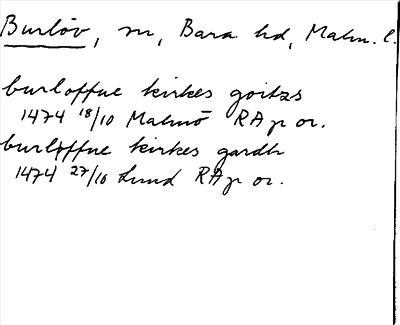 Burlöv, sn, Bara hd, Malm. l.
burloffue kirkes goitzs
1474 18/10 Malmö RAp or.
burloffue kirkes gardh
1474 27/10 Lund RAp or.